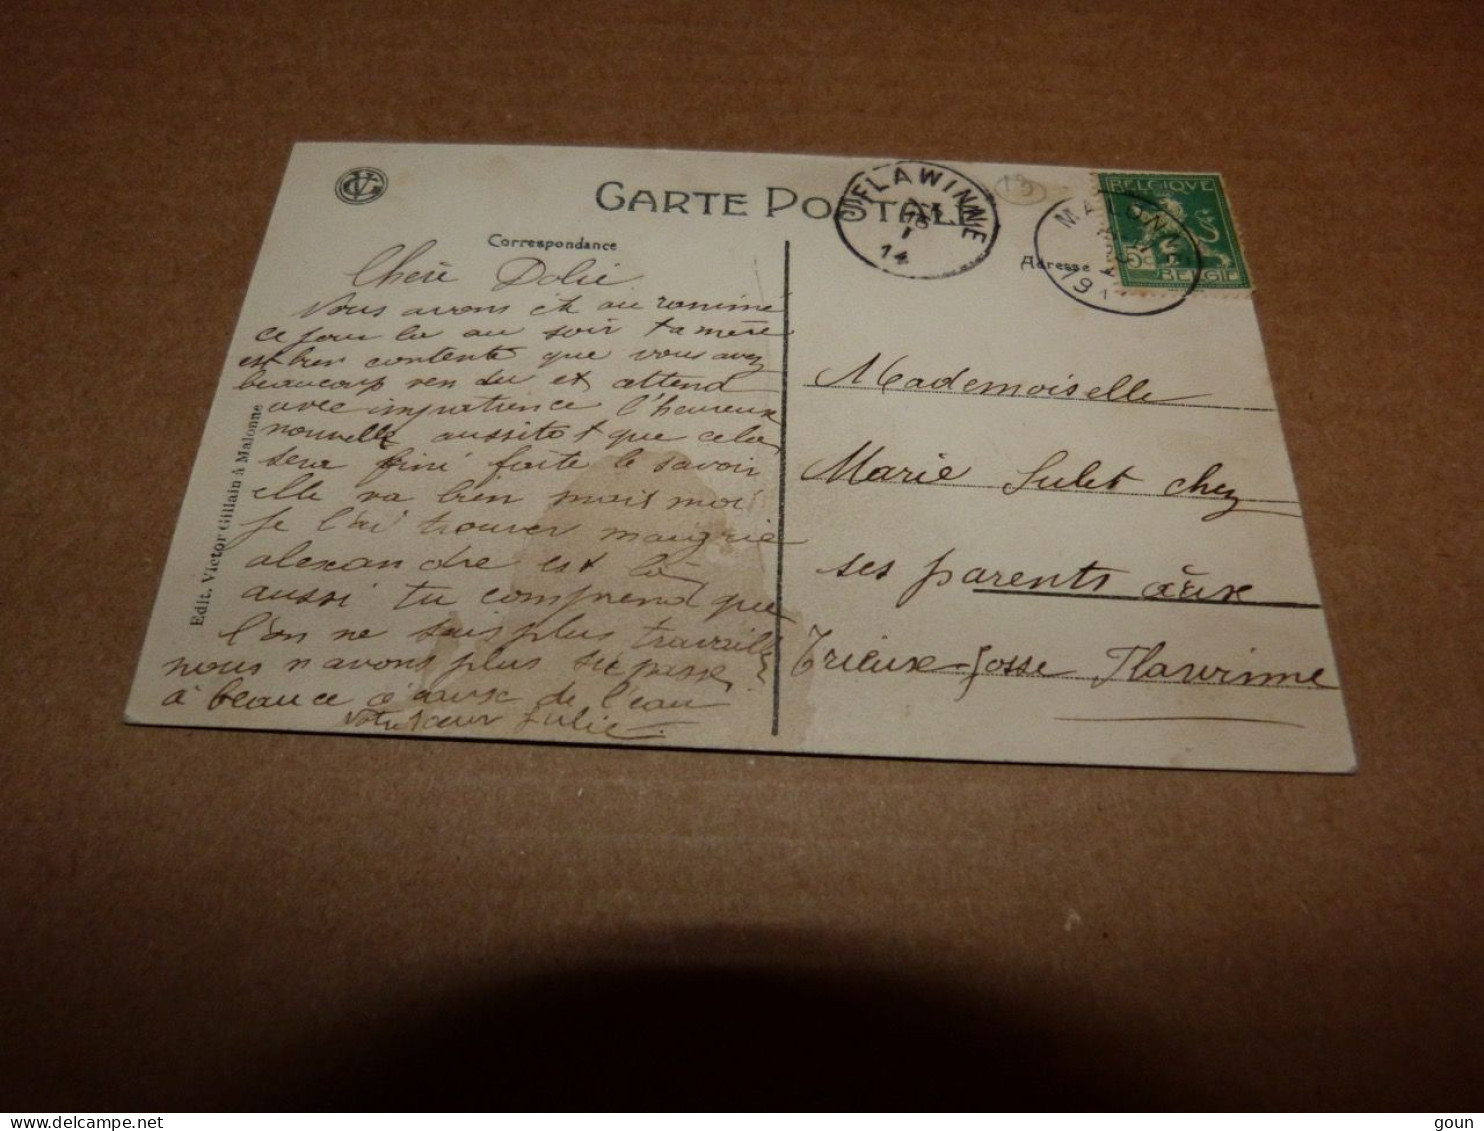 VG
CARTE POSTALE
Correspondance
Adresse
FLAWINNE
14
MALONNE
191
BELGIQUE
5c
BELGIË
Chère Dolie
Nous avons été au ranimé
ce jour la au soir ta mère
est bien contente que vous avez
beaucoup vendu et attend
avec impatience l'heureux
nouvelle aussitot que cela
sera fini faite le savoir
elle va bien mais moi
je l'ai trouver maigrie
alexandre est là
aussi tu comprend que
l'on ne sais plus travaille
nous n avons plus passe
à beauce d'eaux de l'eau
votre sœur Julie
Edit. Victor Gillain à Malonne
Mademoiselle
Marie Sulet chez
ses parents aux
Trieux-Josse Flawinne
goun